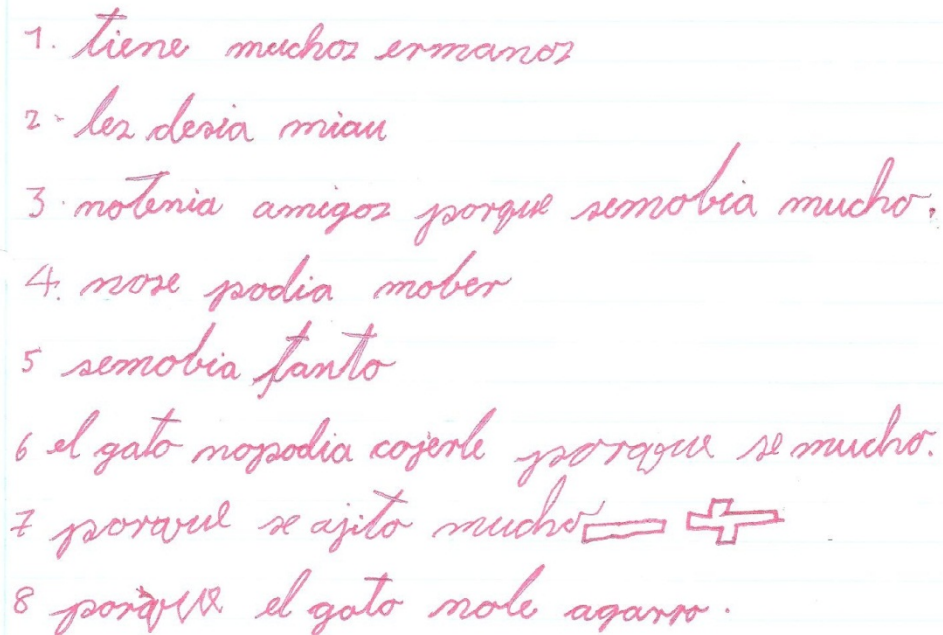 1. tiene muchoz ermanoz
2. lez desia miau
3. notenia amigoz porque semobia mucho.
4. nose podia mober
5 semobia tanto
6 el gato nopodia cojerle porque se mucho.
7 porque se ajito mucho
8 porque el gato nole agarro.